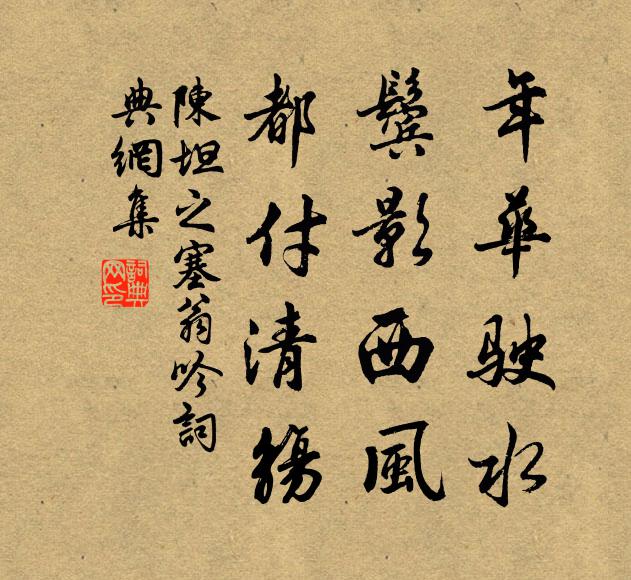 年華駛水
鬢影西風
都付清觴
陳坦之塞翁吟詞
典網集
詞典
网印